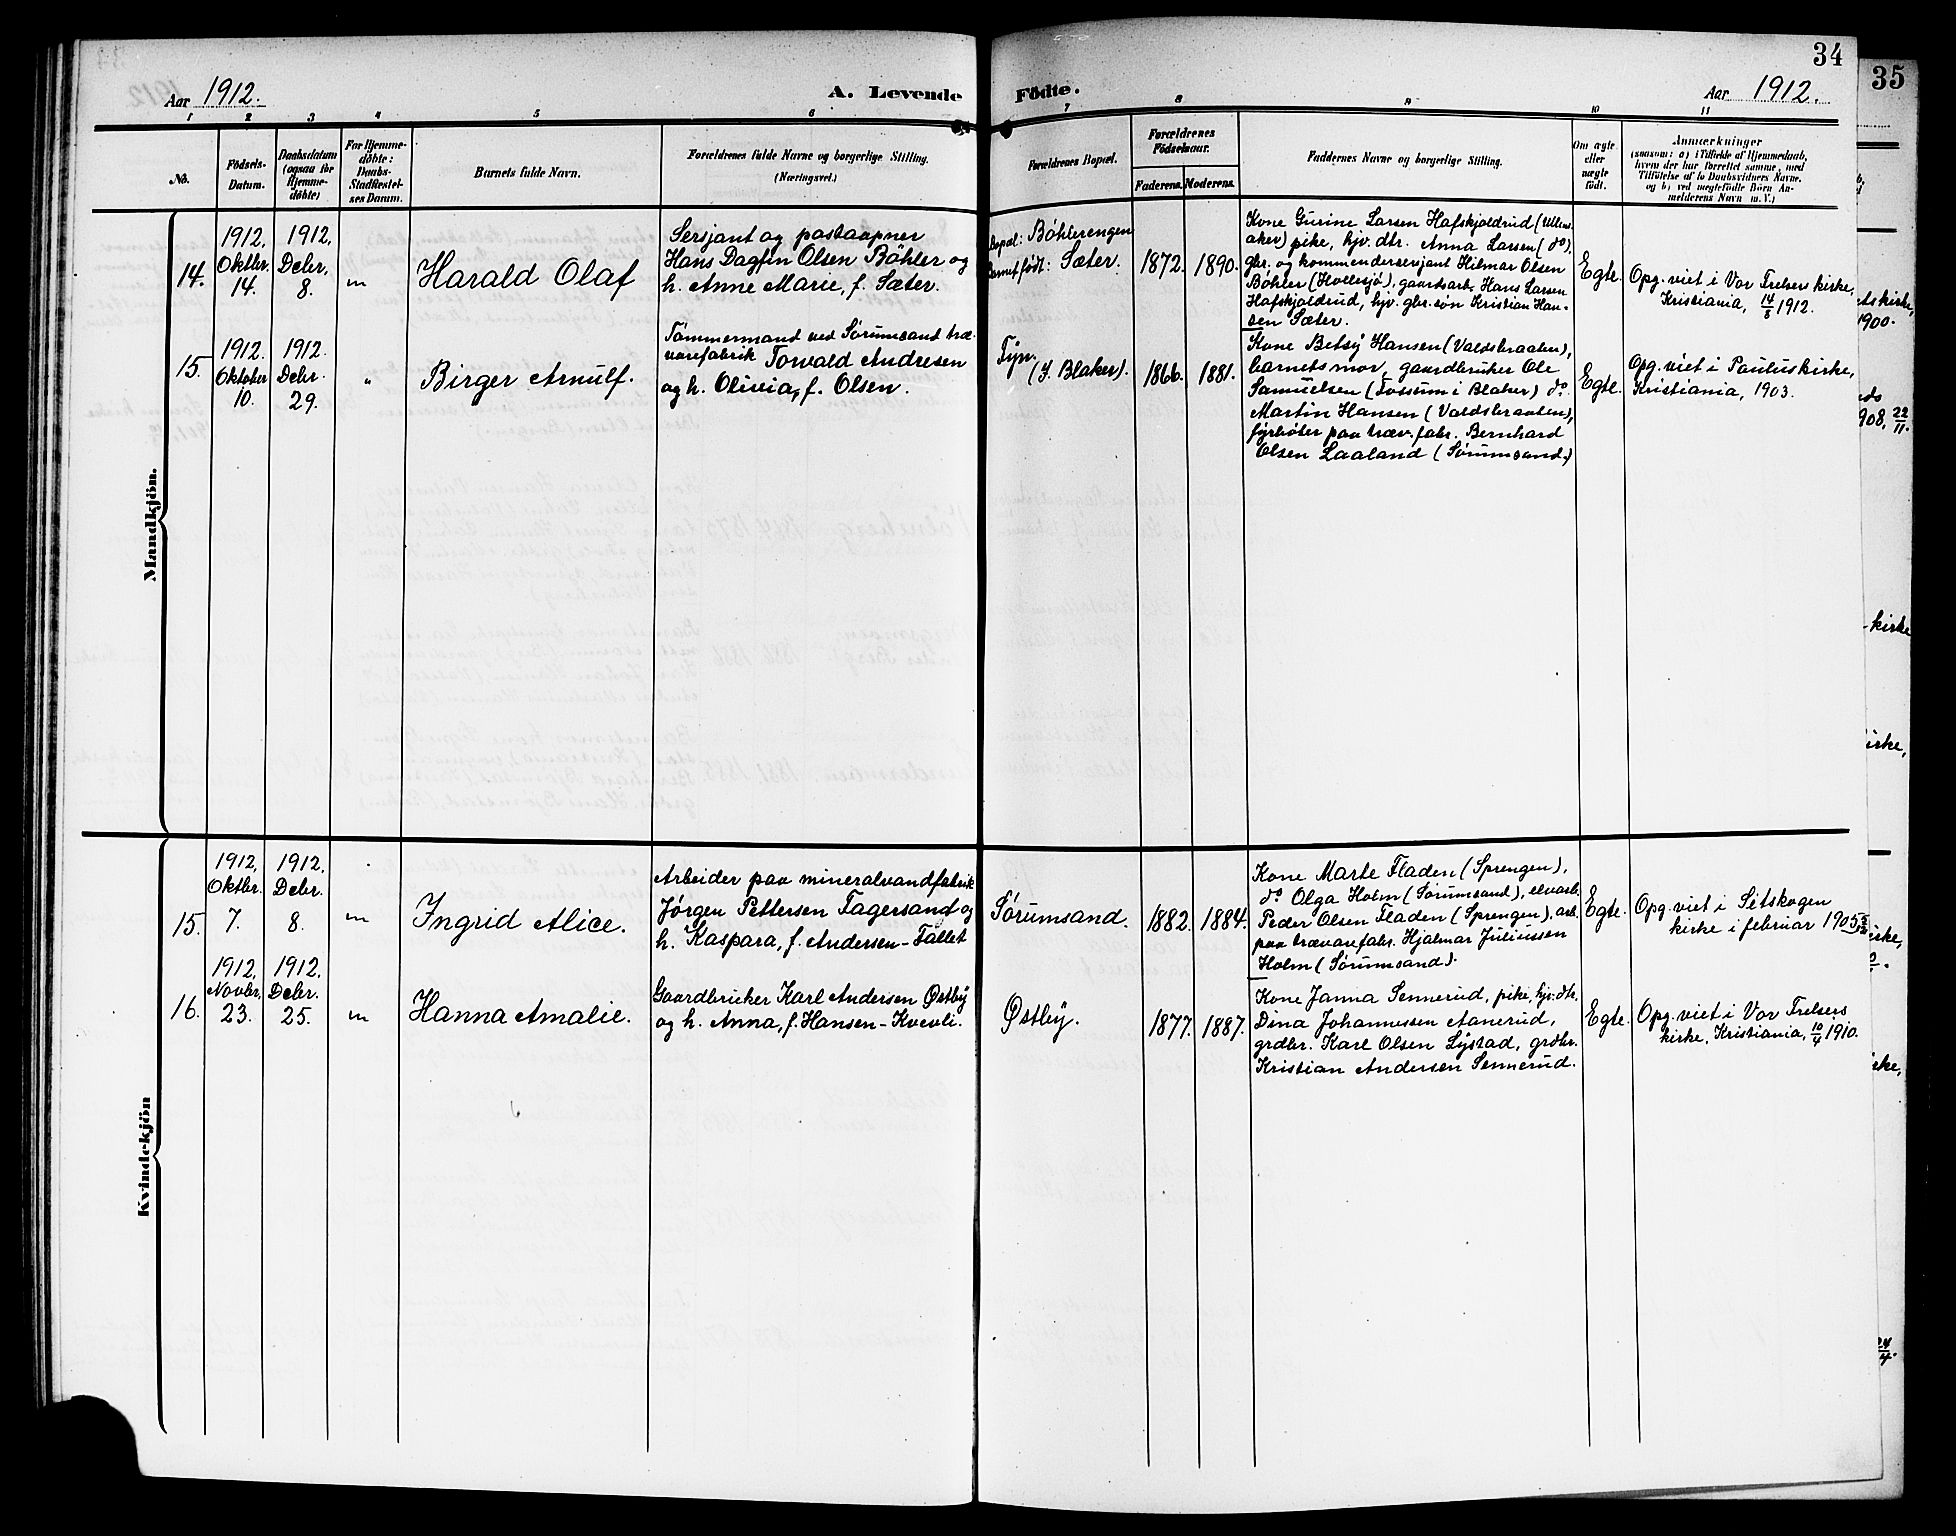 34
35
Aar 1912.
A. Levende
Födte.
Aar 1912.
1 2 3 4 5 6 7 8 9 10 11
No.
Födsels-
Datum.
Daabsdatum
(ogsaa for
Hjemme-
döbte)
For Hjemme-
döbte:
Daabs-
Stadfæstel-
ses Datum.
Barnets fulde Navn.
Forældrenes fulde Navne og borgerlige Stilling.
(Næringsvei.)
Forældrenes Bopæl.
Forældrenes
Födselsaar.
Faderens. Moderens.
Faddernes Navne og borgerlige Stilling.
Om ægte
eller
uægte
födt.
Anmærkninger
(saasom: a) i Tilfælde af Hjemmedaab,
hvem der har forrettet samme, med
Tilföielse af to Daabsvidners Navne,
og b) ved uægtefödte Börn An-
melderens Navn m. V.)
Mandkjön.
14.
1912.
Oktbr.
14.
1912.
Debr.
8.
"
Harald Olaf
Sersjant og postaapner
Hans Dagfin Olsen Bøhler og
h. Anne Marie, f. Sæter.
Bopæl: Bøhlerengen
Barnet født: Sæter.
1872. 1890.
Kone Gurine Larsen Hafskjoldrud (Ullens-
aker) pike, hjv. dtr. Anna Larsen (do),
gbr. og kommendersersjant Hilmar Olsen
Bøhler (Hvellesjø), gaardsarb. Hans Larsen
Hafskjoldrud, hjv. gbr. søn Kristian Han-
sen Sæter.
Egte.
Opg. viet i Vor Frelsers kirke,
Kristiania, 14/8 1912.
15.
1912.
Oktober
10.
1912.
Debr.
29.
"
Birger Arnulf.
Tømmermand ved Sørumsand træ-
varefabrik Torvald Andresen
og h. Olivia, f. Olsen.
Fyri
(S. Blaker).
1866. 1881.
Kone Betsy Hansen (Valdsbraaten),
barnets mor, gaardbruker Ole
Samuelsen (Fossum i Blaker) do
Martin Hansen (Valdsbraaten),
fyrbøter paa træv. fabr. Bernhard
Olsen Laaland (Sørumsand.)
Egte.
Opg. viet i Paulus kirke,
Kristiania, 1903.
Kvindekjön
15.
1912.
Oktbr.
7.
1912.
Debr.
8.
"
Ingrid Alice.
Arbeider paa mineralvandfabrik
Jørgen Pettersen Fagersand og
h. Kaspara, f. Andersen-Fallet
Sørumsand.
1882. 1884.
Kone Marte Fladen (Sprengen),
do Olga Holm (Sørumsand), elvearb.
Peder Olsen Fladen (Sprengen), arb.
paa trævarefabr. Hjalmar Juliussen
Holm (Sørumsand).
Egte.
Opg. viet i Sètskogen
kirke i februar 1905
16.
1912.
Novbr.
23.
1912.
Debr.
25.
"
Hanna Amalie.
Gaardbruker Karl Andersen Østby
og h. Anna, f. Hansen-Kvevli.
Østby.
1877. 1887.
Kone Janna Sennerud, pike, hjv. dtr.
Dina Johannessen Aanerud,
grdbr. Karl Olsen Lystad, grdbr.
Kristian Andersen Sennerud.
Egte.
Opg. viet i Vor Frelsers
kirke, Kristiania, 10/4 1910.
kirke,
1900.
908, 22/11.
kirke
24/4.